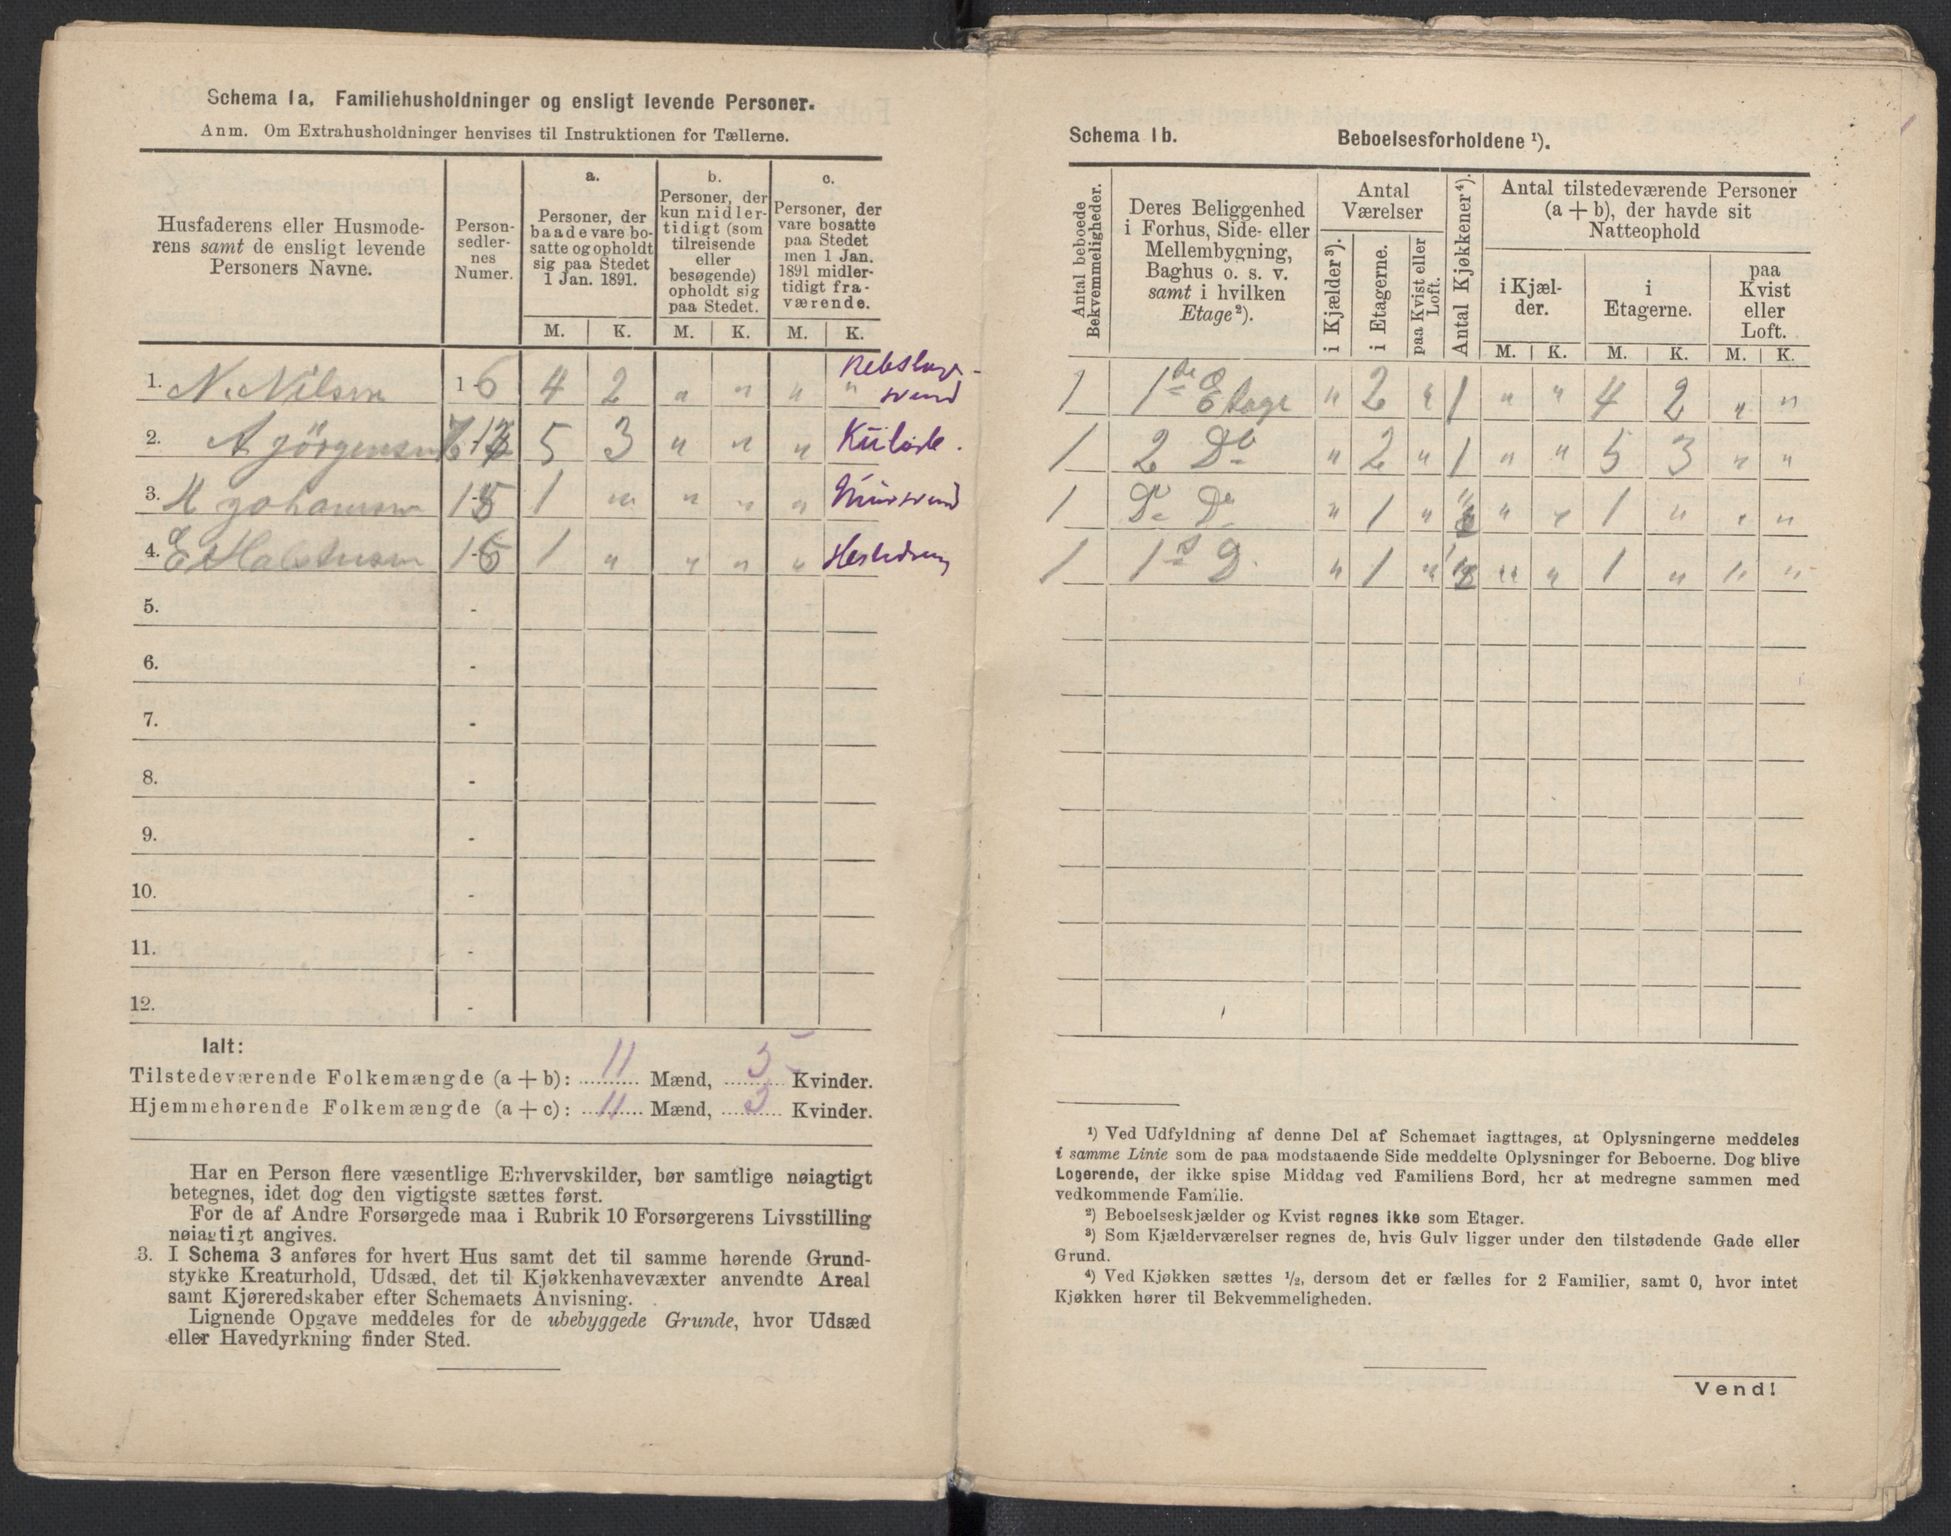 Schema 1a. Familiehusholdninger og ensligt levende Personer.
Anm. Om Extrahusholdninger henvises til Instruktionen for Tællerne.
Husfaderens eller Husmode-
rens samt de ensligt levende
Personers Navne.
Person-
sedler-
nes
Numer.
a.
Personer, der
baade vare bo-
satte og opholdt
sig paa Stedet
1 Jan. 1891.
b.
Personer, der
kun midler-
tidigt (som
tilreisende
eller
besøgende)
opholdt sig
paa Stedet.
c.
Personer, der
vare bosatte
paa Stedet
men 1 Jan.
1891 midler-
tidigt fra-
værende.
M. K. M. K. M. K.
1. N. Nilsen 1-6 4 2 " " " "
2. A Jörgensen 5 3 " " "
3. H Johansen 1 " " " "
4. 1 " " " "
5. -
6. -
7. -
8. -
9. -
10. -
11. -
12. -
Ialt:
Tilstedeværende Folkemængde (a + b): 11 Mænd, 5 Kvinder.
Hjemmehørende Folkemængde (a + c): 11 Mænd, Kvinder.
Har en Person flere væsentlige Erhvervskilder, bør samtlige nøiagtigt
betegnes, idet dog den vigtigste sættes først.
For de af Andre Forsørgede maa i Rubrik 10 Forsørgerens Livsstilling
nøiagtigt angives.
3. I Schema 3 anføres for hvert Hus samt det til samme hørende Grund-
stykke Kreaturhold, Udsæd, det til Kjøkkenhavevæxter anvendte Areal
samt Kjøreredskaber efter Schemaets Anvisning.
Lignende Opgave meddeles for de ubebyggede Grunde, hvor Udsæd
eller Havedyrkning finder Sted.
Schema 1b. Beboelsesforholdene ¹).
Antal beboede
Bekvemmeligheder.
Deres Beliggenhed
i Forhus, Side- eller
Mellembygning,
Baghus o. s. v.
samt i hvilken
Etage²).
Antal
Værelser
i Kjælder³).
i Etagerne.
paa Kvist eller
Loft.
Antal Kjøkkener⁴).
Antal tilstedeværende Personer
(a + b), der havde sit
Natteophold
i Kjæl-
der.
i
Etagerne.
paa
Kvist
eller
Loft.
M. K. M. K. M. K.
1 1de Etage " 2 " 1 " " 4 2 " "
1 2 Do " 2 " 1 " " 5 3 " "
1 Do Do " 1 " " " 1 " " "
1 1 D. " 1 " " " 1 " " "
¹) Ved Udfyldning af denne Del af Schemaet iagttages, at Oplysningerne meddeles
i samme Linie som de paa modstaaende Side meddelte Oplysninger for Beboerne. Dog blive
Logerende, der ikke spise Middag ved Familiens Bord, her at medregne sammen med
vedkommende Familie.
²) Beboelseskjælder og Kvist regnes ikke som Etager.
³) Som Kjælderværelser regnes de, hvis Gulv ligger under den tilstødende Gade eller
Grund.
⁴) Ved Kjøkken sættes ½, dersom det er fælles for 2 Familier, samt 0, hvor intet
Kjøkken hører til Bekvemmeligheden.
Vend!